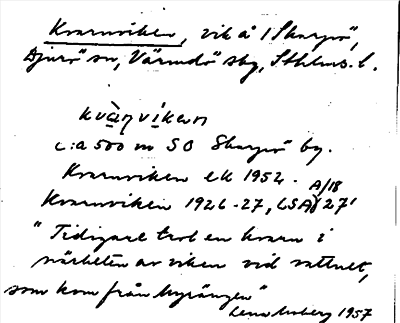 Kvarnviken, vik å 1 Skarpö,
Djurö sn, Värmdö sbg, Sthlms l.
kvàɳvikən
c:a 500 m SO Skarpö by.
Kvarnviken ek 1952.
Kvarnviken 1926-27, LSA A/18 27'
"Tidigare trol en kvarn i
närheten av viken vid vattnet,
som kom från kyrängen"
1957